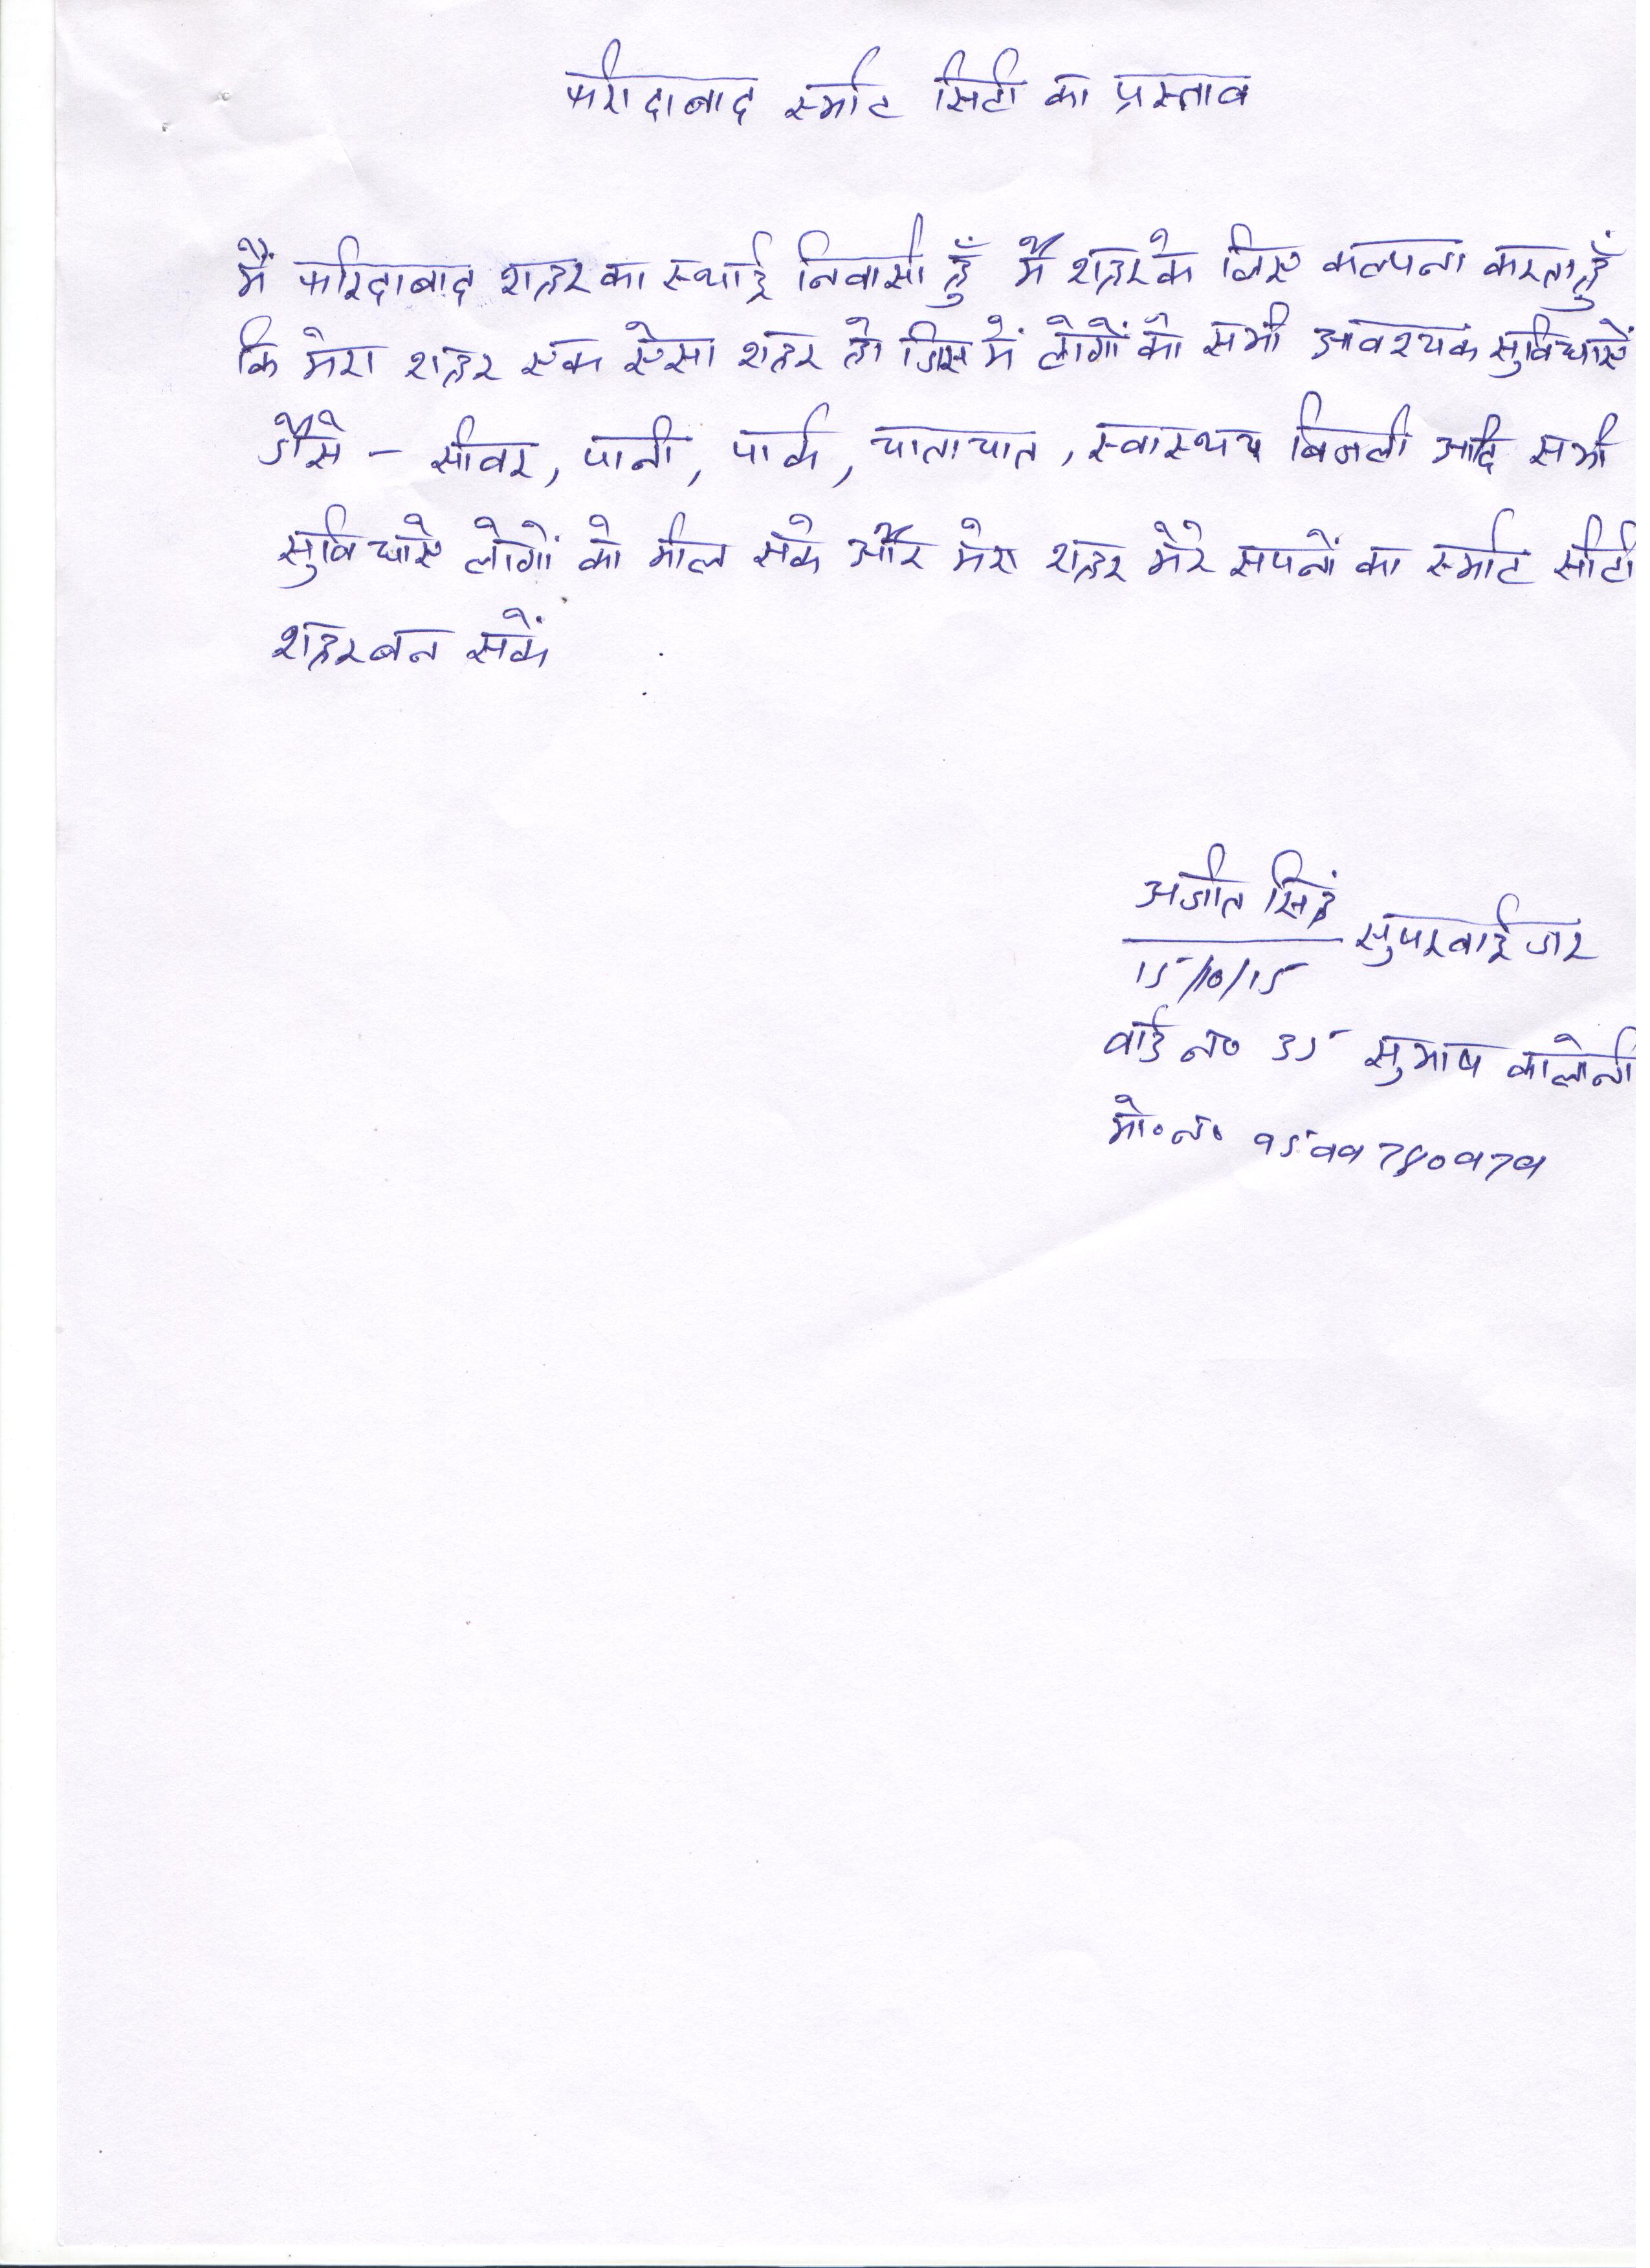 फरीदाबाद स्मार्ट सिटी का प्रस्ताव
मैं फरिदाबाद शहर का स्थाई निवासी हुँ मैं शहर के लिए कल्पना करता हुँ
कि मेरा शहर एक ऐसा शहर हो जिस में लोगों को सभी आवश्यक सुविधाऐं
जैसे - सीवर, पानी, पार्क, यातायात, स्वास्थय बिजली आदि सभी
सुविधाऐ लोगों को मील सके और मेरा शहर मेरे सपनों का स्मार्ट सीटी
शहर बन सकें
अजीत सिंह
सुपरवाईजर
15/10/15
वार्ड न० 35 सुभाष कालोनी
मो॰ न॰